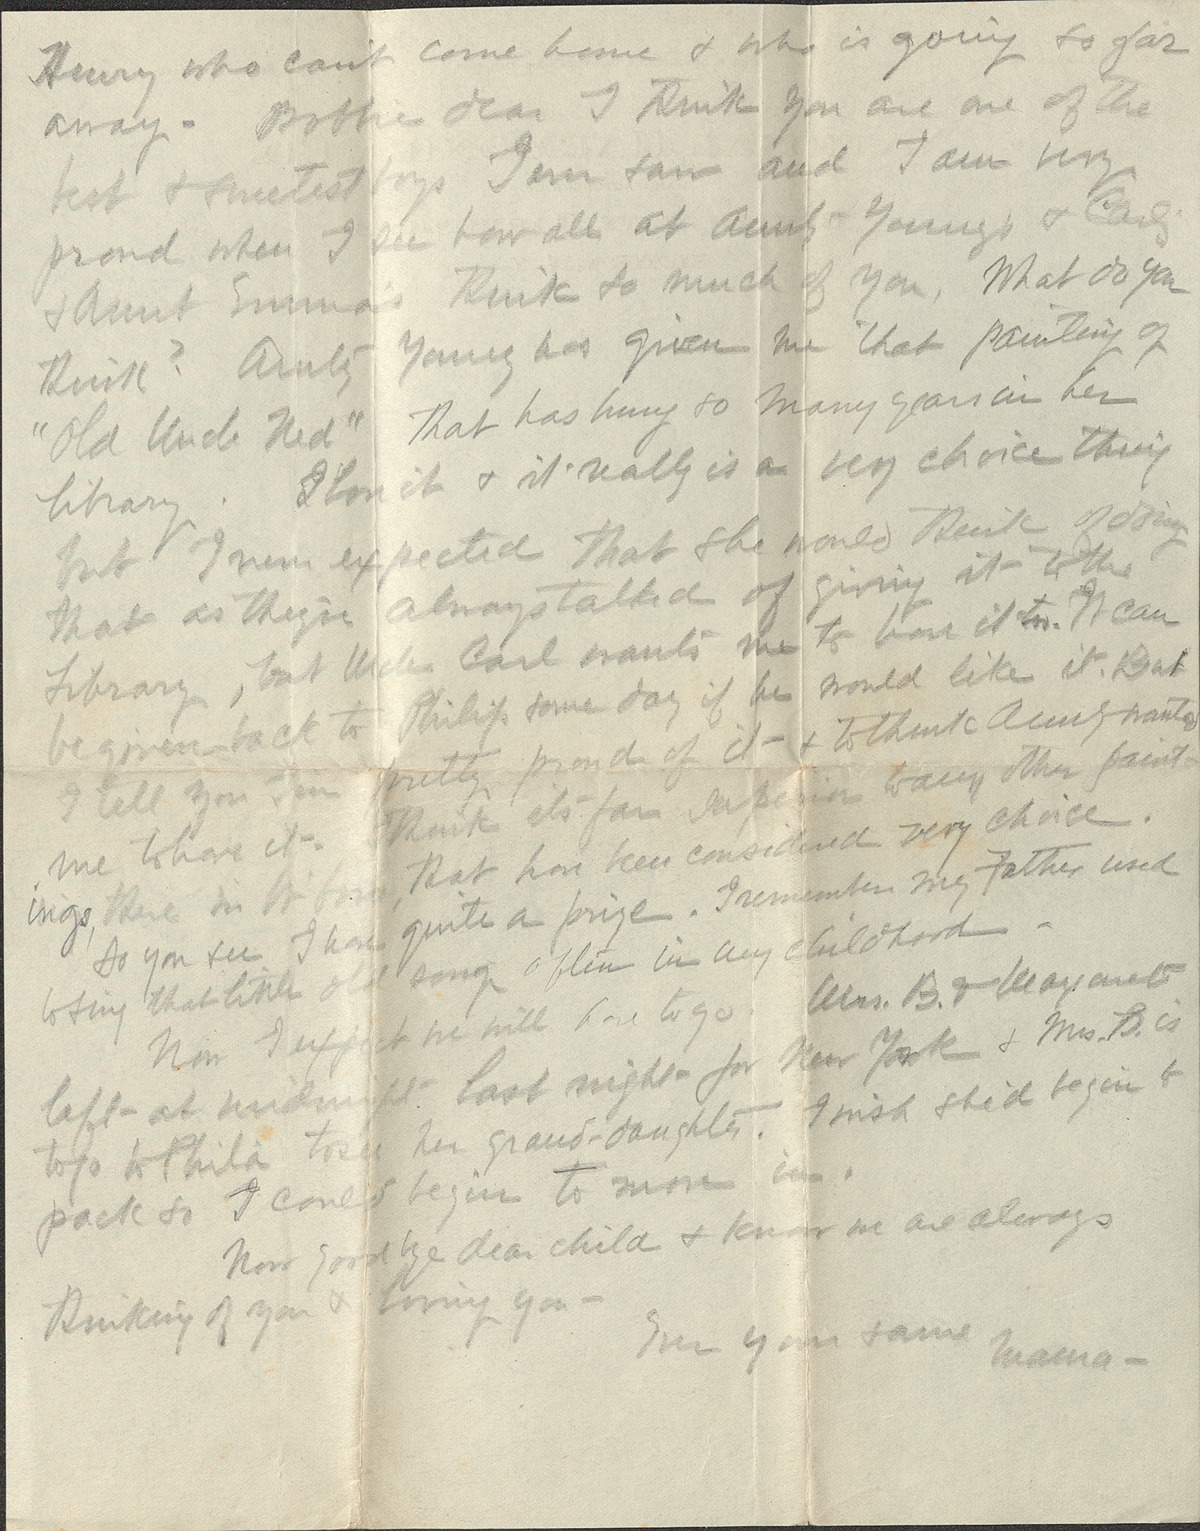 Henry who can't come home & who is going so far
away - Bobbie dear I think you are one of the
best & sweetest boys I ever saw and I am very
proud when I see how all at Aunty Young's & Carl's
& Aunt Emma's think so much of you. What do you
think? Aunty Young has given me that painting of
"Old Uncle Ned" that has hung so many years in her
library. I love it & it really is a very choice thing
but I never expected that she would think of doing
that as they've always talked of giving it to the
Library, but Uncle Carl wants me to have it too. It can
be given back to Philip some day if he would like it. But
I tell you I'm pretty proud of it - & to think Aunty wants
me to have it -. I think its far superior to any other paint-
ings, there in that have been considered very choice.
So you see I have quite a prize. I remember my Father used
to sing that little old song often in my childhood -
Now I expect we will have to go. Mrs. B. & Margaret
left - at midnight last night - for New York & Mrs. B. is
to go to Phila to see her grand-daughter. I wish she'd begin to
pack so I could begin to move in.
Now good bye dear child & know we are always
thinking of you & loving you -
Ever your same Mama -